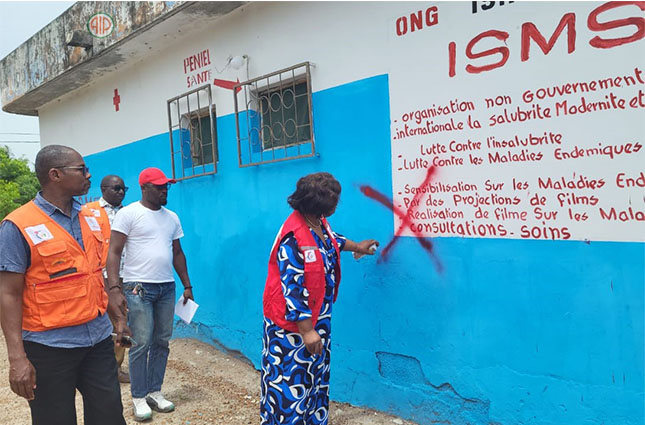 PENIEL
SANTÉ
ONG
ISMS
-organisation non Gouvernement
-internationale la salubrité Modernité et
Lutte Contre l'insalubrité
-Lutte Contre les Maladies Endemiques
-Sensibilisation Sur les Maladies End
Par des Projections de films
Réalisation de filme Sur les Mala
consultations-soins